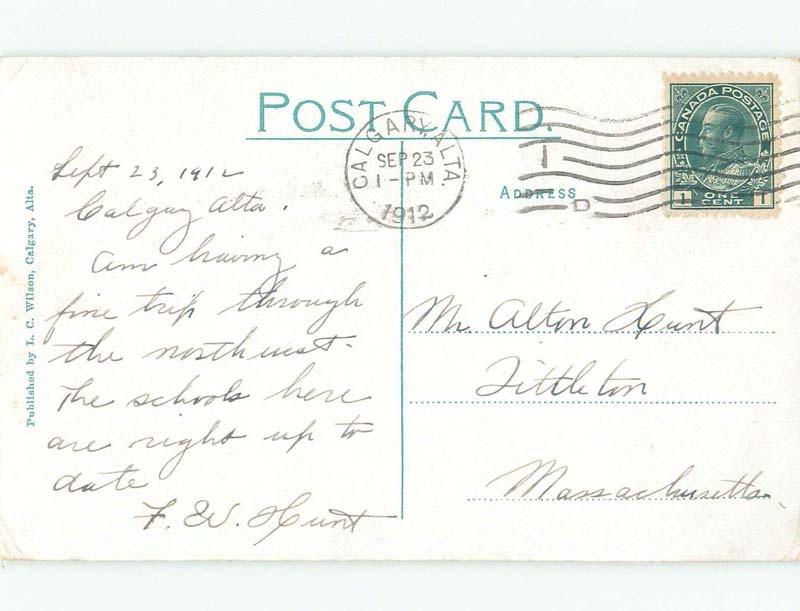 POST CARD.
CALGARY, ALTA.
SEP 23
1-PM
1912
1
D
CANADA POSTAGE
1 ONE CENT 1
ADDRESS
Published by L. C. Wilson, Calgary, Alta.
Sept 23, 1912
Calgary Alta.
Am having a
fine trip through
the northwest.
The schools here
are right up to
date
F. W. Hunt
Mr. Alton Hunt
Littleton
Massachusetts